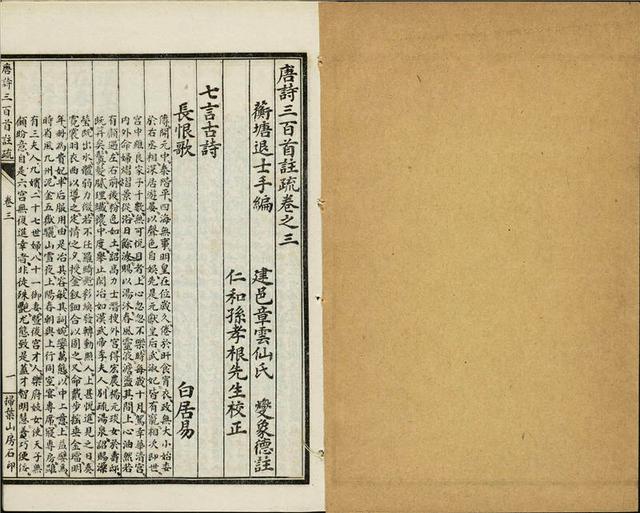 唐詩三百首註疏卷之三
蘅塘退士手編 建邑章雲仙氏 燮象德註
仁和孫孝根先生校正
七言古詩
長恨歌 白居易
傳開元中泰階平四海無事明皇在位歲久倦於旰食宵衣政無大小始委
於右丞相深居遊宴以聲色自娛先是元獻皇后武淑妃皆有寵相次即世
宮中雖良家子千數無可悅目者上心忽忽不樂時每歲十月駕幸華清宮
內外命婦熠燿景從浴日餘波賜以湯沐春風靈液澹蕩其間上心油然若
有顧遇左右前後粉色如土詔高力士潛搜外宮得宏農楊元琰女於壽邸
既笄矣鬢髮膩理纖穠中度舉止閒冶如漢武帝李夫人別疏湯泉詔賜澡
瑩既出水體弱力微若不任羅綺光彩煥發轉動照人上甚悅進見之日奏
霓裳羽衣曲以導之定情之夕授金釵鈿合以固之又命戴步搖垂金璫明
年冊為貴妃半后服用由是冶其容敏其詞婉孌萬態以中上意上益嬖焉
時省風九州泥金五嶽驪山雪夜上陽春朝與上行同室宴專席寢專房雖
有三夫人九嬪二十七世婦八十一御妻暨後宮才人樂府妓女使天子無
顧盼意自是六宮無復進幸者非徒殊艷尤態致是蓋才智明慧善巧便佞
唐詩三百首註疏 卷三 一 掃葉山房石印